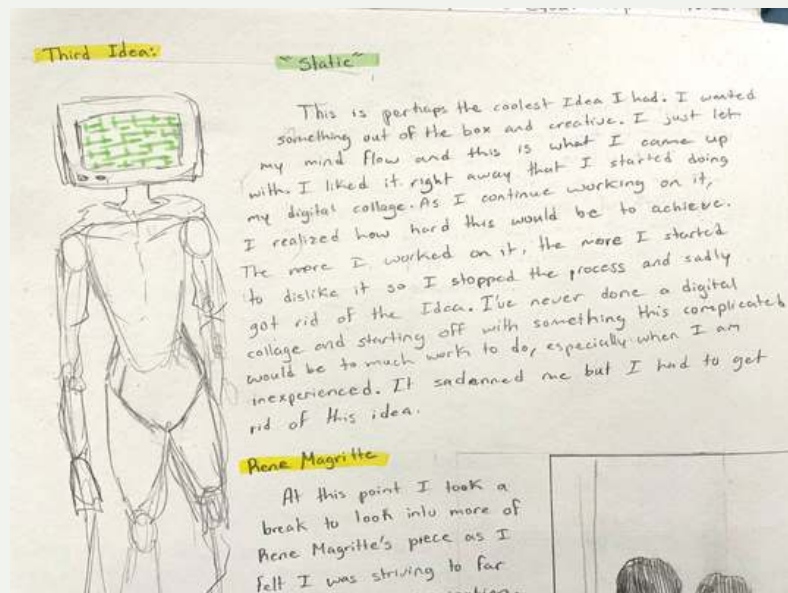 Third Idea:
"Static"
This is perhaps the coolest Idea I had. I wanted
something out of the box and creative. I just let
my mind flow and this is what I came up
with. I liked it right away that I started doing
my digital collage. As I continue working on it,
I realized how hard this would be to achieve.
The more I worked on it, the more I started
to dislike it so I stopped the process and sadly
got rid of the Idea. I've never done a digital
collage and starting off with something this complicated
would be to much work to do, especially when I am
inexperienced. It sadenned me but I had to get
rid of this idea.
Rene Magritte
At this point I took a
break to look into more of
Rene Magritte's piece as I
felt I was striving to far